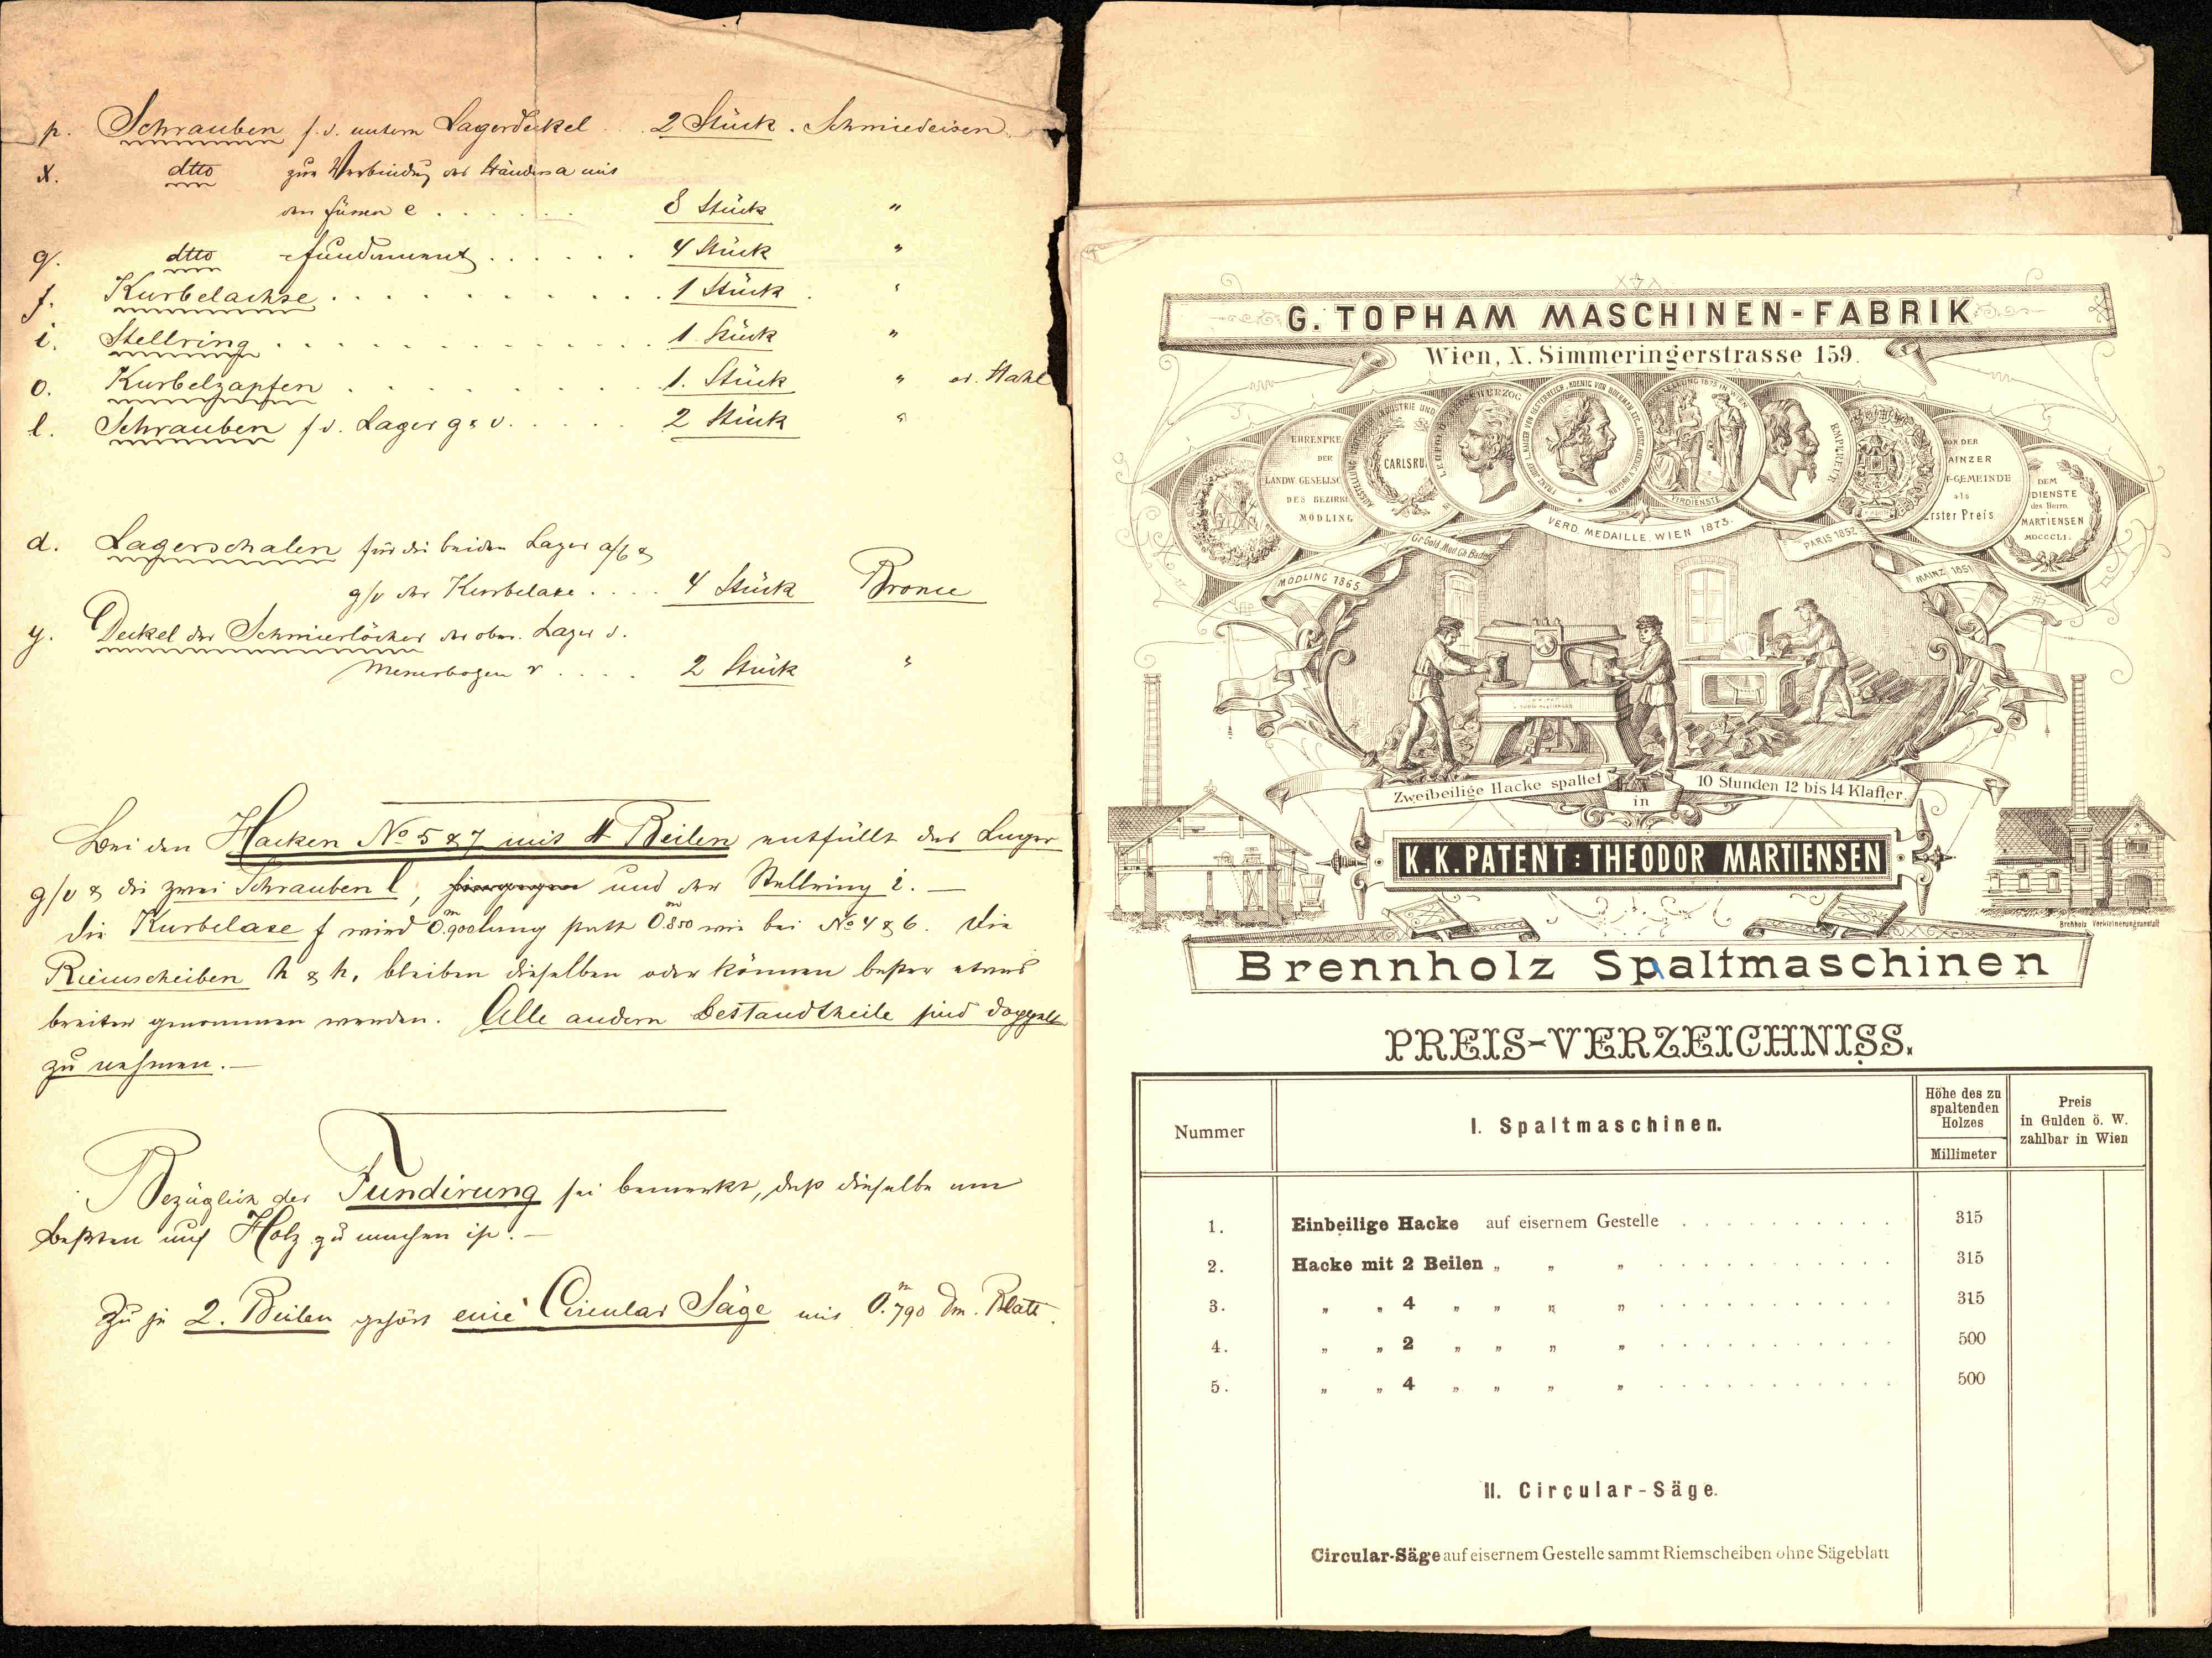 p. Schrauben f. d. untern Lagerdeckel . . 2 Stück . Schmiedeisen
x. dtto zur Verbindung des Ständers a mit
den Füssen e . . . . . . 8 Stück "
q. dtto Fundament . . . . . . 4 Stück "
f. Kurbelachse . . . . . . . . . . 1 Stück . "
i. Stellring . . . . . . . . . . . 1 Stück "
o. Kurbelzapfen . . . . . . . . . 1. Stück " od. Stahl
l. Schrauben f d. Lager g & v. . . . . . 2 Stück "
d. Lagerschalen für die beiden Lager a/b &
g/v der Kurbelaxe . . . . 4 Stück Bronce
y. Deckel der Schmierlöcher der ober. Lager d.
Messerbogen r . . . . 2 Stück "
Bei den Hacken No 5 & 7 mit 4 Beilen entfällt das Lager
g/v & die zwei Schrauben l, und der Stellring i. —
Die Kurbelaxe f wird 0.900 m lang statt 0.850 m wie bei No 4 & 6. Die
Riemscheiben h & h, bleiben dieselben oder können besser etwas
breiter genommen werden. Alle andern Bestandtheile sind doppelt
zu nehmen. —
Bezüglich der Fundirung sei bemerkt, daß dieselbe am
beßten auf Holz zu machen ist. —
Zu je 2. Beilen gehört eine Circular Säge mit 0.790 m Dm. Blatt.
G. TOPHAM MASCHINEN-FABRIK
Wien, X. Simmeringerstrasse 159.
EHRENPRE
DER
LANDW GESELLSC
DES BEZIRK
MÖDLING
CARLSRU
EMPEREUR
VERDIENSTE
VON DER
AINZER
T-GEMEINDE
als
Erster Preis
DEM
DIENSTE
des Herrn
MARTIENSEN
MDCCCLI.
MÖDLING 1865
Gr. Gold. Med. Gh. Baden
VERD. MEDAILLE. WIEN 1873.
PARIS 1852
MAINZ 1851
Zweibeilige Hacke spaltet in 10 Stunden 12 bis 14 Klafter.
K.K. PATENT: THEODOR MARTIENSEN
Brehholz Verkleinerungsanstalt
Brennholz Spaltmaschinen
PREIS-VERZEICHNISS.
Nummer
I. Spaltmaschinen.
Höhe des zu
spaltenden
Holzes
Millimeter
Preis
in Gulden ö. W.
zahlbar in Wien
1. Einbeilige Hacke auf eisernem Gestelle . . . . . . . . . . . 315
2. Hacke mit 2 Beilen „ „ „ . . . . . . . . . . . 315
3. „ „ 4 „ „ „ „ . . . . . . . . . . . 315
4. „ „ 2 „ „ „ „ . . . . . . . . . . . 500
5. „ „ 4 „ „ „ „ . . . . . . . . . . . 500
II. Circular-Säge.
Circular-Säge auf eisernem Gestelle sammt Riemscheiben ohne Sägeblatt